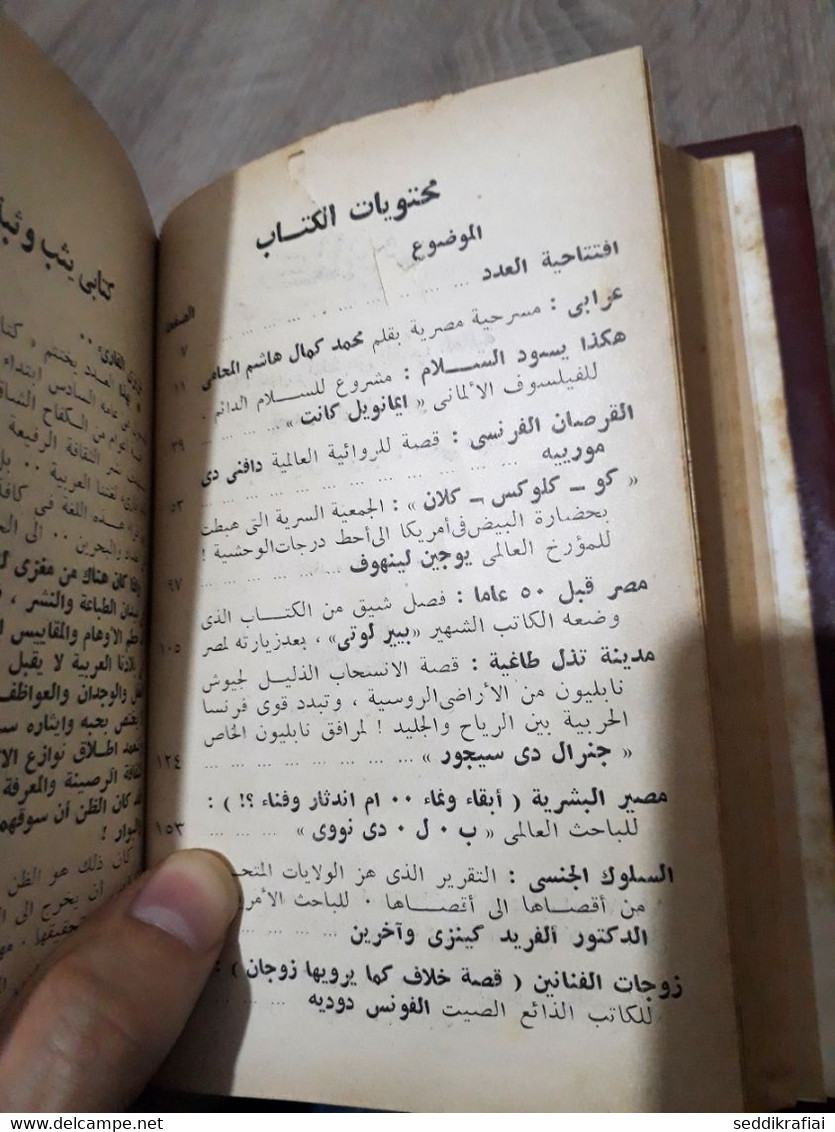 محتويات الكتاب
الموضوع
الصفحة
افتتاحية العدد ... ... ... ... ... ... ... ٧
عرابى : مسرحية مصرية بقلم محمد كمال هاشم المحامى ١١
هكذا يسود السلام : مشروع للسلام الدائم .
للفيلسوف الألمانى « ايمانويل كانت » ... ... ... ٣٩
القرصان الفرنسى : قصة للروائية العالمية دافنى دى
مورييه ... ... ... ... ... ... ... ... ٥٣
« كو - كلوكس - كلان » : الجمعية السرية التى هبطت
بحضارة البيض فى أمريكا الى أحط درجات الوحشية !
للمؤرخ العالمى يوجين لينهوف ... ... ... ... ... ٩٧
مصر قبل ٥٠ عاما : فصل شيق من الكتاب الذى
وضعه الكاتب الشهير «بيير لوتى» ، بعد زيارته لمصر ١٠٥
مدينة تذل طاغية : قصة الانسحاب الذليل لجيوش
نابليون من الأراضى الروسية ، وتبدد قوى فرنسا
الحربية بين الرياح والجليد ! لمرافق نابليون الخاص
« جنرال دى سيجور » ... ... ... ... ... ... ... ١٢٤
مصير البشرية ( أبقاء ونماء ٠٠ ام اندثار وفناء ؟! ) :
للباحث العالمى « ب ٠ ل ٠ دى نووى » ... ... ... ١٥٣
السلوك الجنسى : التقرير الذى هز الولايات
من أقصاها الى أقصاها ٠ للباحث
الدكتور الفريد كينزى وآخرين ... ... ... ...
زوجات الفنانين ( قصة خلاف كما يرويها زوجان ) :
للكاتب الذائع الصيت الفونس دوديه ... ... ...
كتابى يثب
العدد يختتم
عامه السادس ابتداء
من الكفاح
نشر الثقافة الرفيعة
لغتنا العربية ٠٠
هذه اللغة فى
والبحرين ٠٠ الى
كان هناك من مغزى
الطباعة والنشر ،
الأوهام والمقاييس
العربية لا يقبل
والوجدان والعواطف
بحبه وايثاره
اطلاق نوازع
الرصينة والمعرفة
كان الظن أن سوقهم
والبوار !
كان ذلك هو الظن
أن يخرج الى
تحقيقها ٠
www.delcampe.net
seddikrafiai